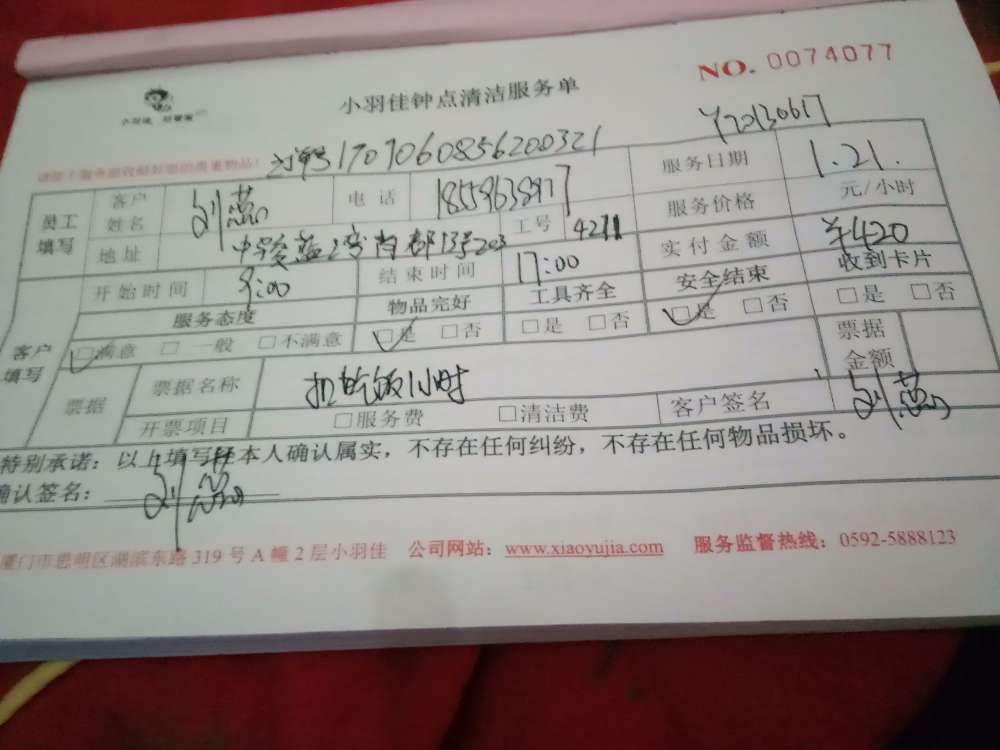 NO. 0074077
小羽佳钟点清洁服务单
Y70130617
1707060856200321
员工填写 客户姓名 电话 服务日期 1.21.
地址 2号 13号203 工号 4211 服务价格 元/小时
开始时间 9:00 结束时间 17:00 实付金额 ¥420
客户填写 服务态度 物品完好 工具齐全 安全结束 收到卡片
□满意 □一般 □不满意 □是 □否 □是 □否 □是 □否 □是 □否
票据 票据名称 扣吃饭1小时 票据金额
开票项目 □服务费 □清洁费 客户签名
特别承诺：以上填写经本人确认属实，不存在任何纠纷，不存在任何物品损坏。
确认签名：
厦门市思明区湖滨东路319号A幢2层小羽佳 公司网站：www.xiaoyujia.com 服务监督热线：0592-5888123